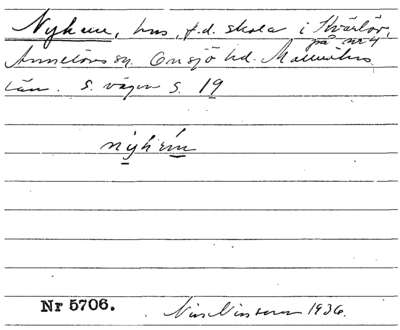 Nyhem, hus, f.d. skola i Kvärlöv,
på nr 4
Annelövs sn. Onsjö hd. Malmöhus
län. S. vägen S. 19
nyhem
Nr 5706. Nils Nilsson 1936.